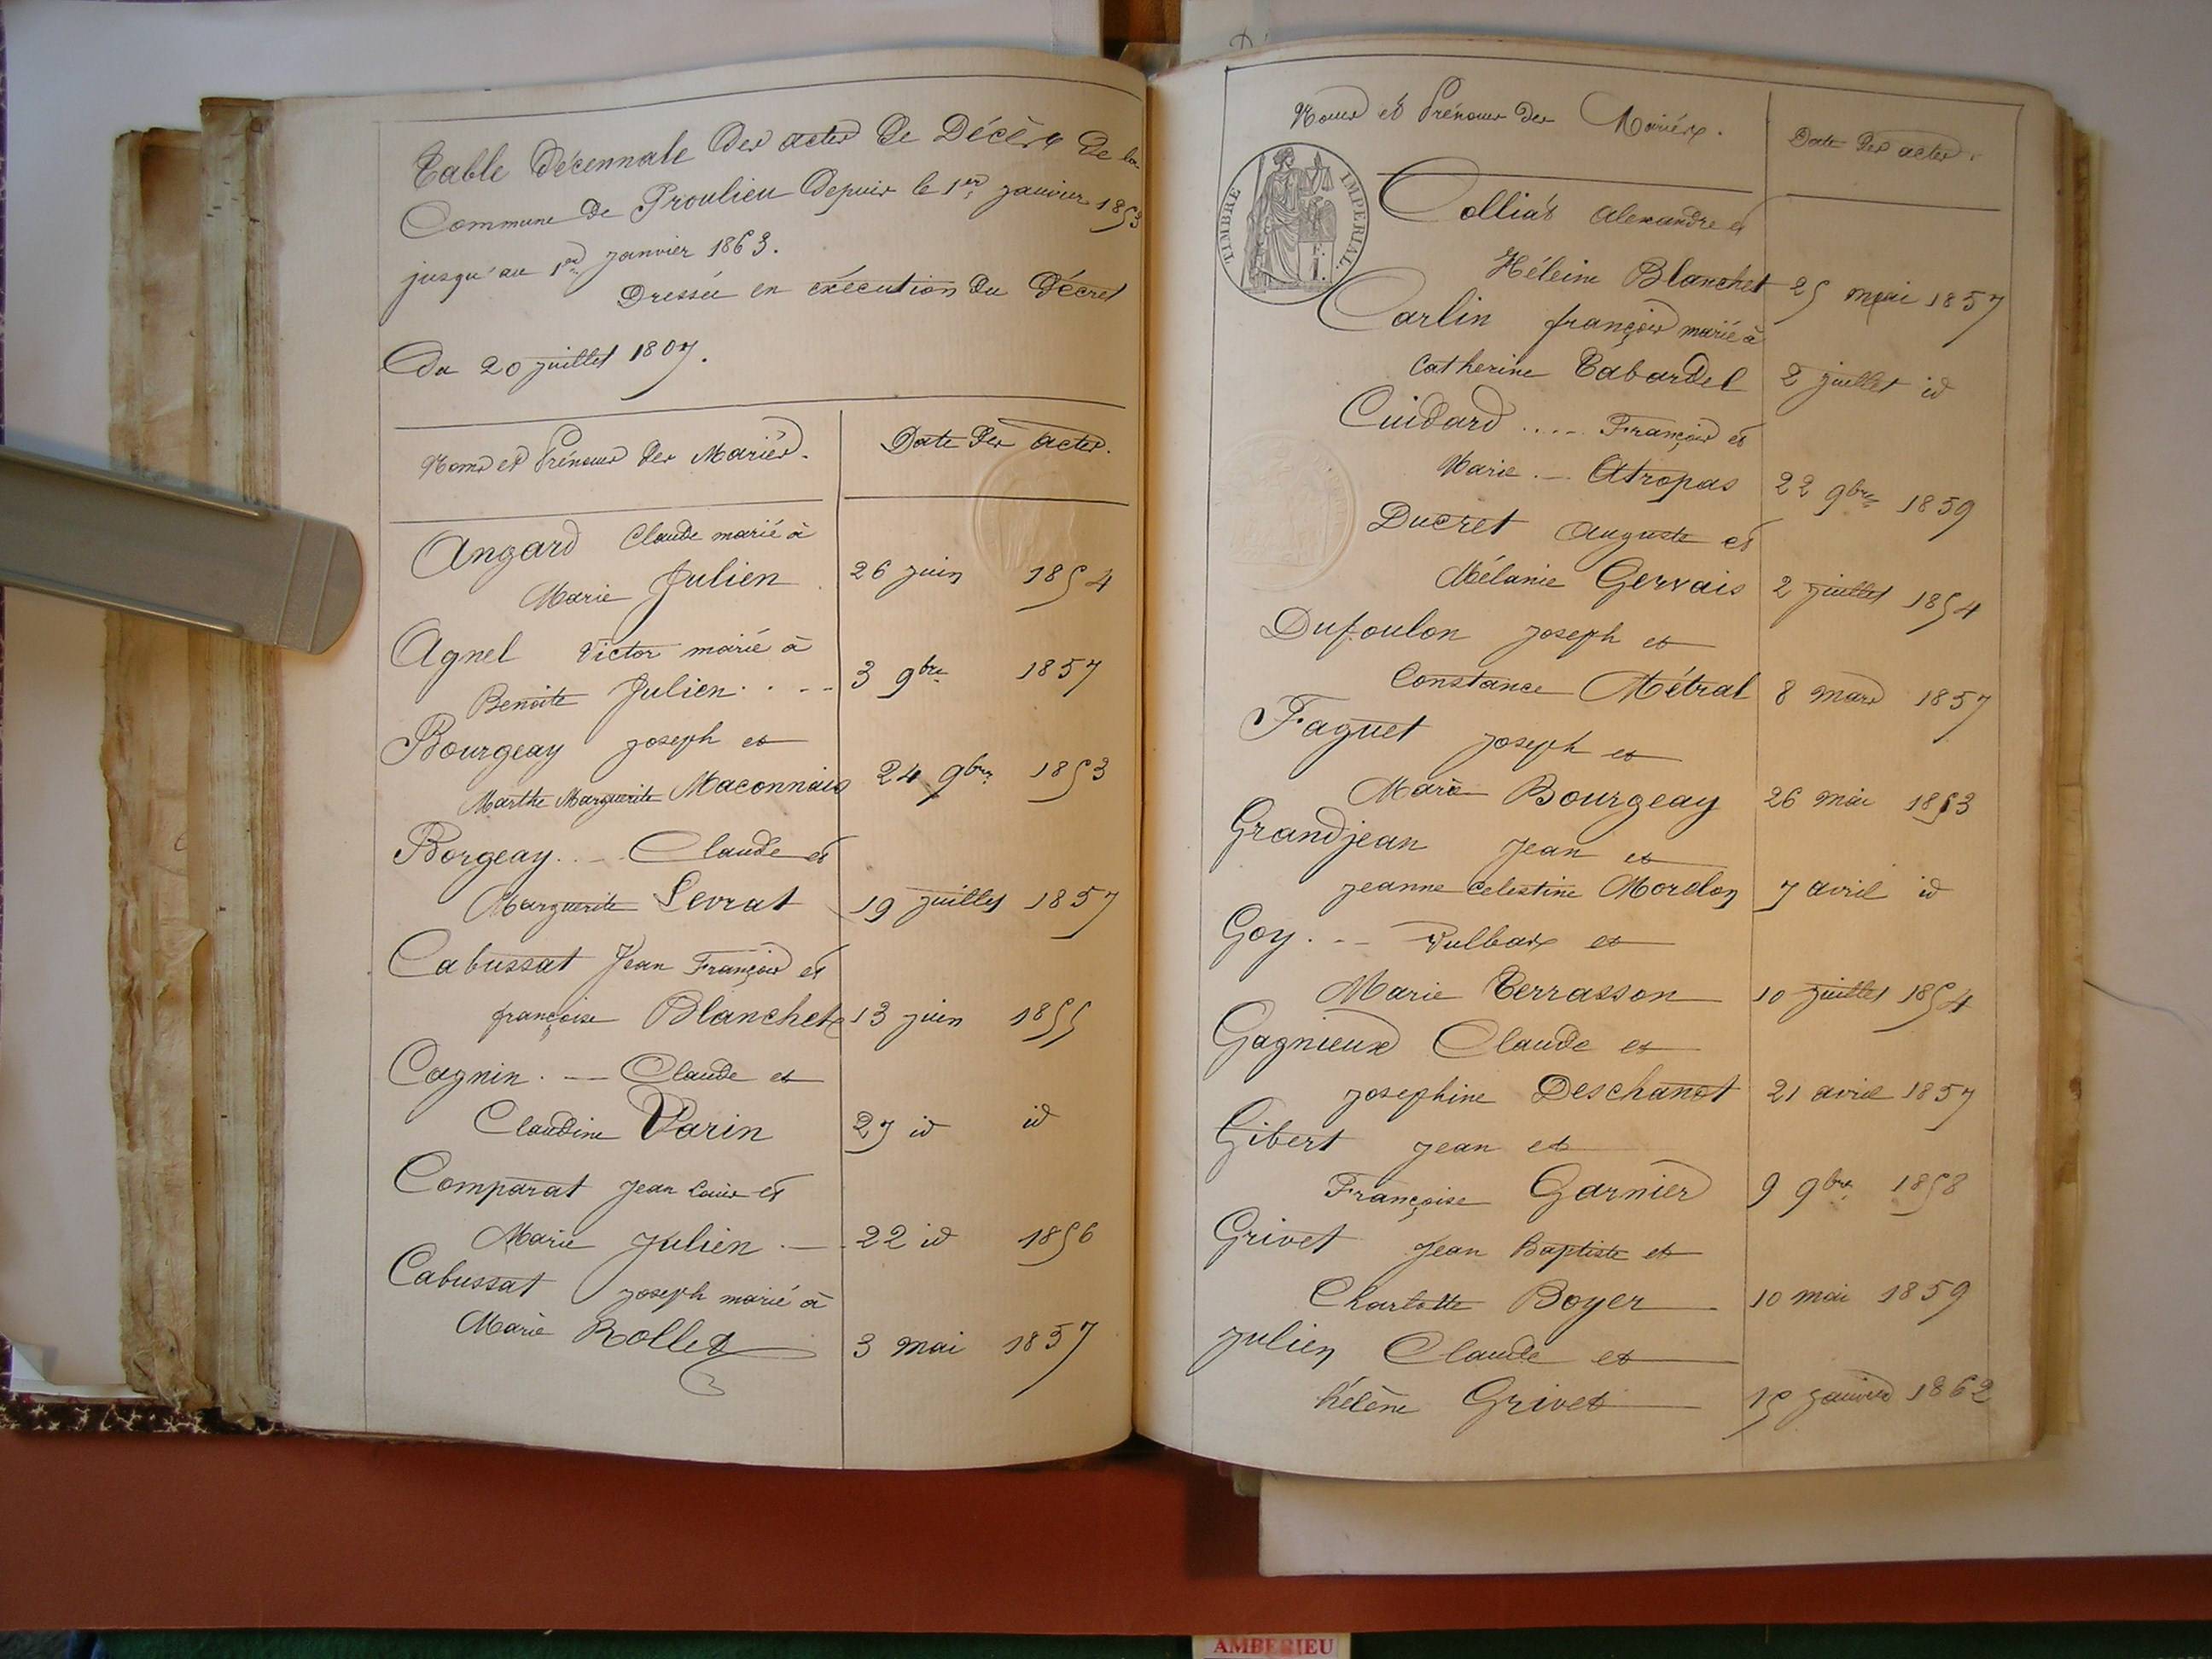 Table Décennale des actes de Décès de la
Commune de Proulieu depuis le 1er janvier 1853
jusqu'au 1er janvier 1863.
Dressée en exécution du Décret
du 20 juillet 1807.
Noms et Prénoms des Mariés.
Date des actes.
Angard Claude marié à
Marie Julien 26 juin 1854
Agnel Victor marié à
Benoite Julien . . -- 3 9bre 1857
Bourgeay joseph et
Marthe Marguerite Maconnais 24 9bre 1853
Borgeay . . -- Claude et
Marguerite Levrat 19 juillet 1857
Cabussat Jean François et
françoise Blanchet 13 juin 1855
Cagnin . -- Claude et
Claudine Varin 27 id id
Comparat Jean Louis et
Marie Julien . -- 22 id 1856
Cabussat joseph marié à
Marie Rollet 3 mai 1857
Noms et Prénoms des Mariés.
Date des actes.
TIMBRE IMPERIAL.
Colliat alexandre et
Héleine Blanchet 25 mai 1857
Carlin françois marié à
Catherine Tabardel 2 juillet id
Cuidard ..... François et
Marie . -- Atropas 22 9bre 1859
Ducret Auguste et
Mélanie Gervais 2 juillet 1854
Dufoulon joseph et
Constance Métral 8 mars 1857
Faguet joseph et
Marie Bourgeay 26 mai 1853
Grandjean Jean et
jeanne celestine Morelon 7 avril id
Goy . -- Vulbax et
Marie Terrasson 10 juillet 1854
Gagnieux Claude et
josephine Deschanet 21 avril 1857
Gibert jean et
Françoise Garnier 9 9bre 1858
Grivet Jean Baptiste et
Charlotte Boyer 10 mai 1859
Julien Claude et
hélène Grivet 15 janvier 1862
AMBERIEU